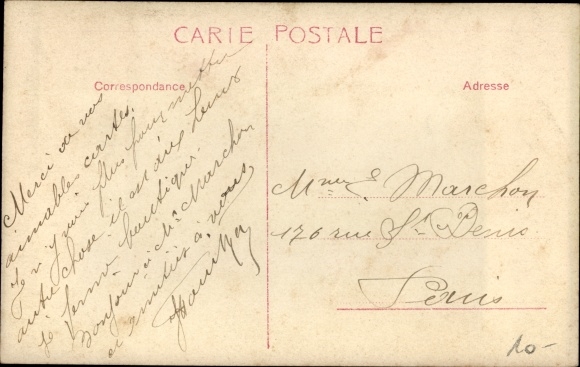 CARTE POSTALE
Correspondance
Adresse
Merci de vos
aimables cartes.
Je n'y puis plus pour mettre
autre chose il est dix heures
je ferme boutique.
Bonjour à Mr Marchon
et amitiés à vous
Mme E. Marchon
170 rue St Denis
Paris
10-